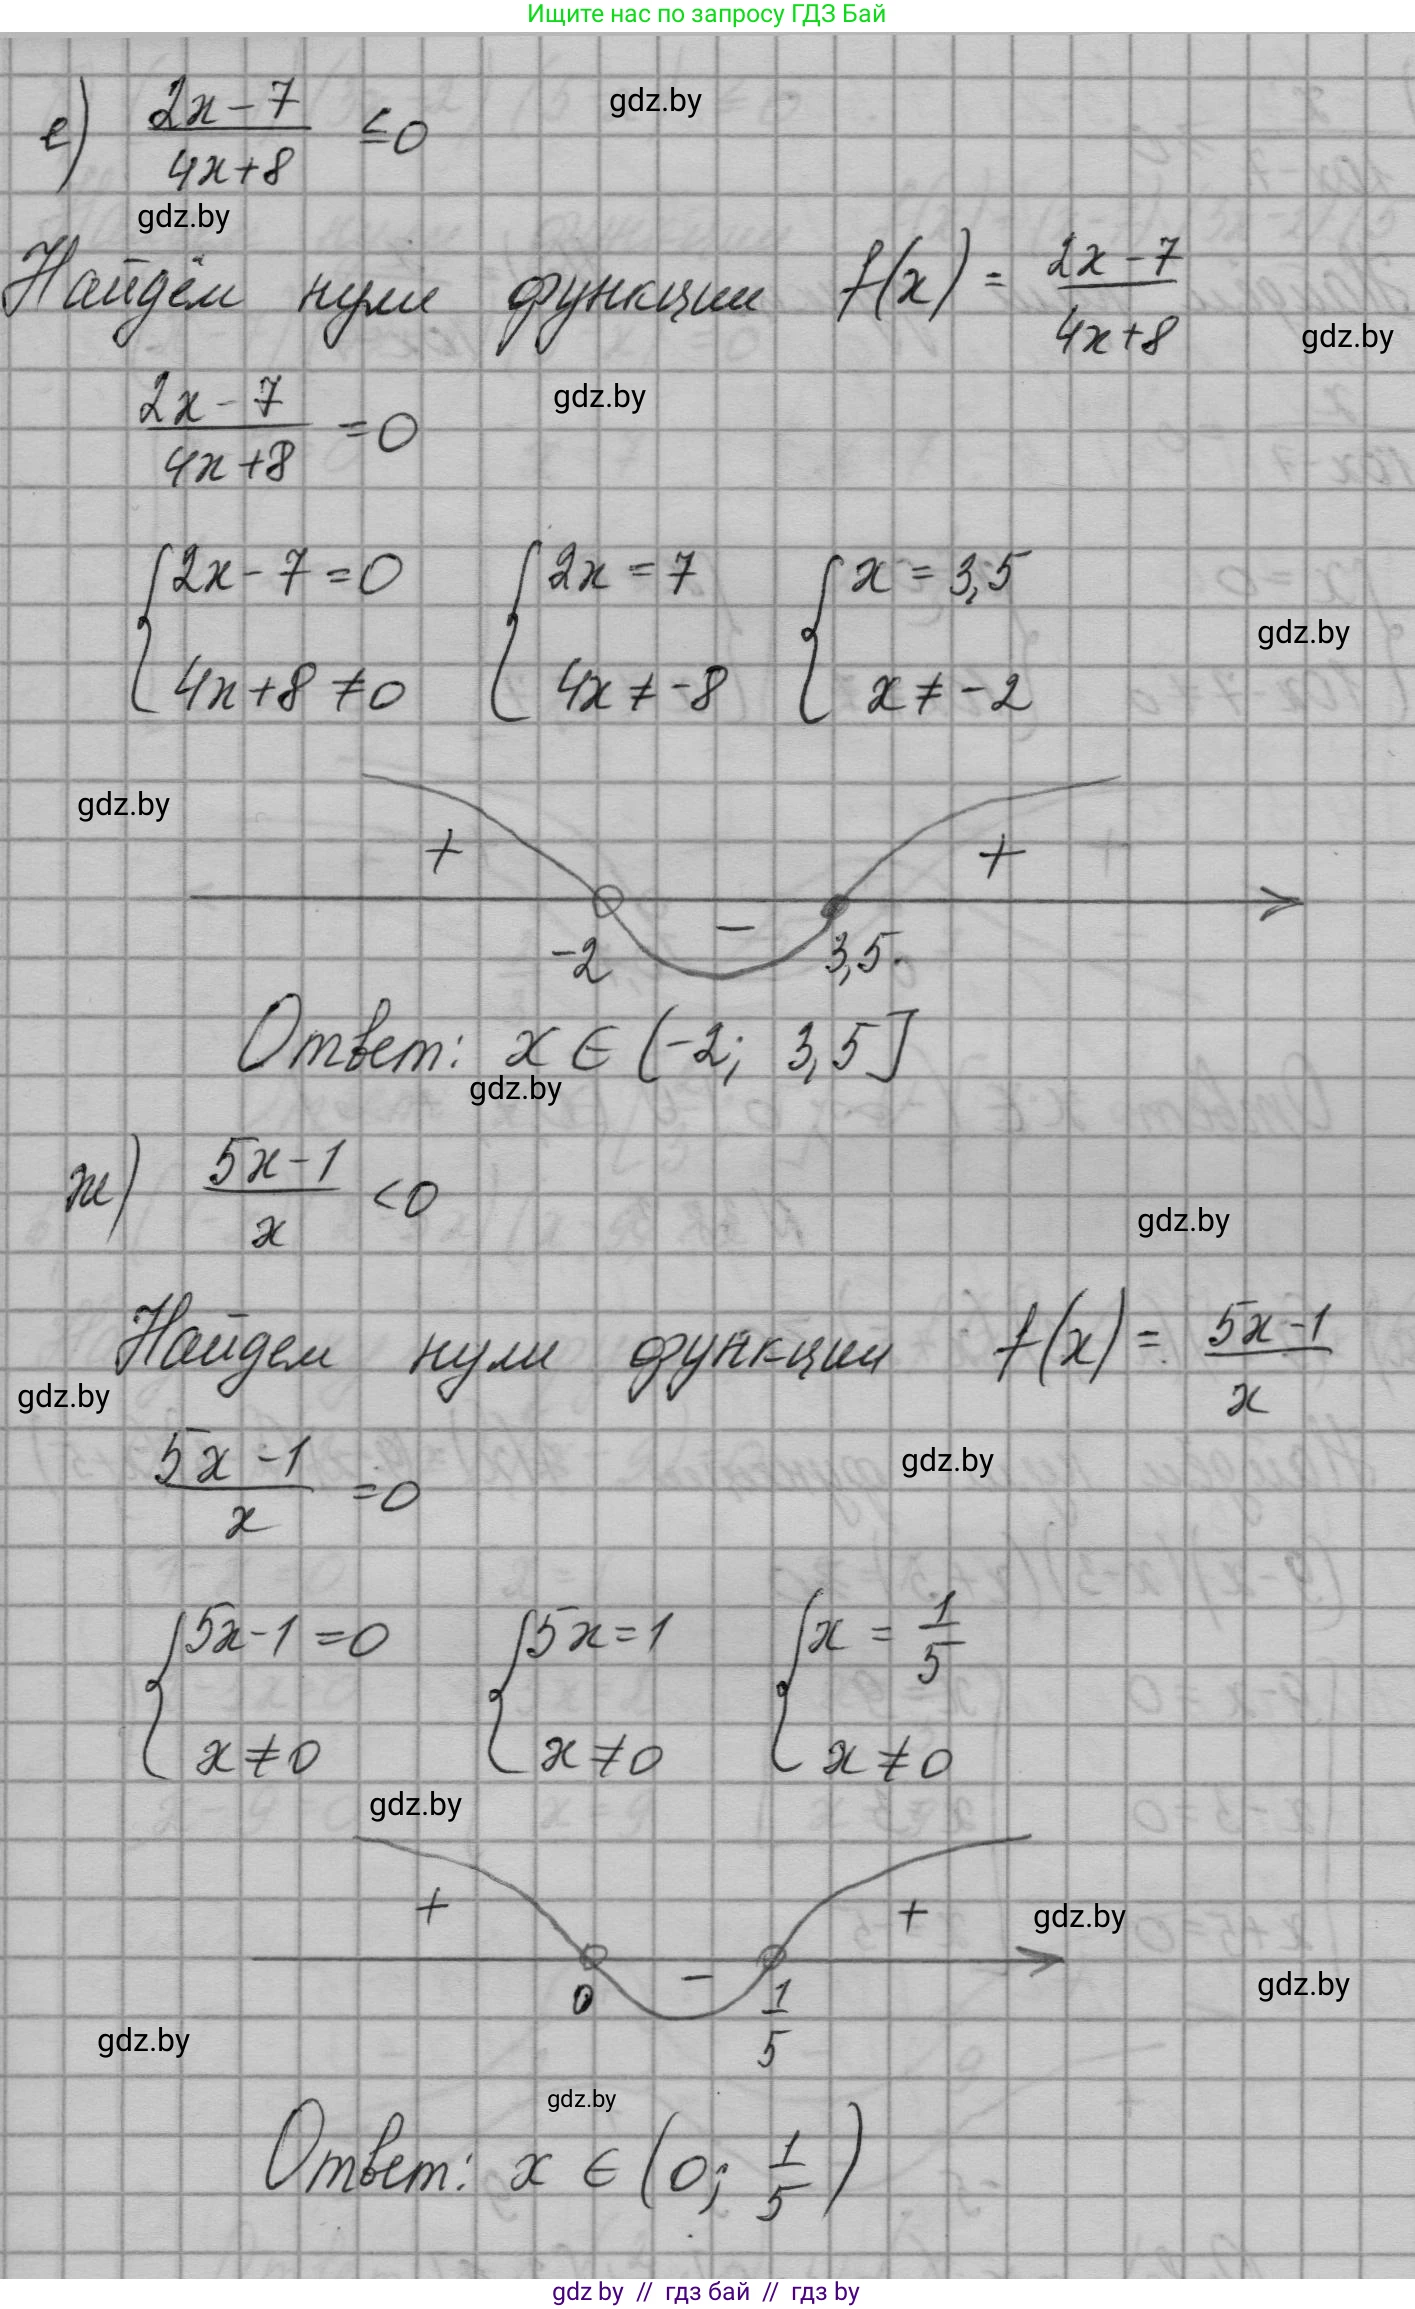 Ищите нас по запросу ГДЗ Бай
е) (2x-7)/(4x+8) ≤ 0
gdz.by
gdz.by
Найдём нули функции f(x) = (2x-7)/(4x+8)
gdz.by
(2x-7)/(4x+8) = 0
gdz.by
{2x-7=0 {2x=7 {x=3,5
gdz.by
4x+8≠0 4x≠-8 x≠-2
gdz.by
+ - +
-2 3,5
Ответ: x∈(-2; 3,5]
gdz.by
ж) (5x-1)/x < 0
gdz.by
Найдем нули функции f(x) = (5x-1)/x
gdz.by
gdz.by
(5x-1)/x = 0
{5x-1=0 {5x=1 {x=1/5
x≠0 x≠0 x≠0
gdz.by
+ - +
gdz.by
gdz.by
0 1/5
gdz.by
gdz.by
Ответ: x∈(0; 1/5)
gdz by // гдз бай // гдз by